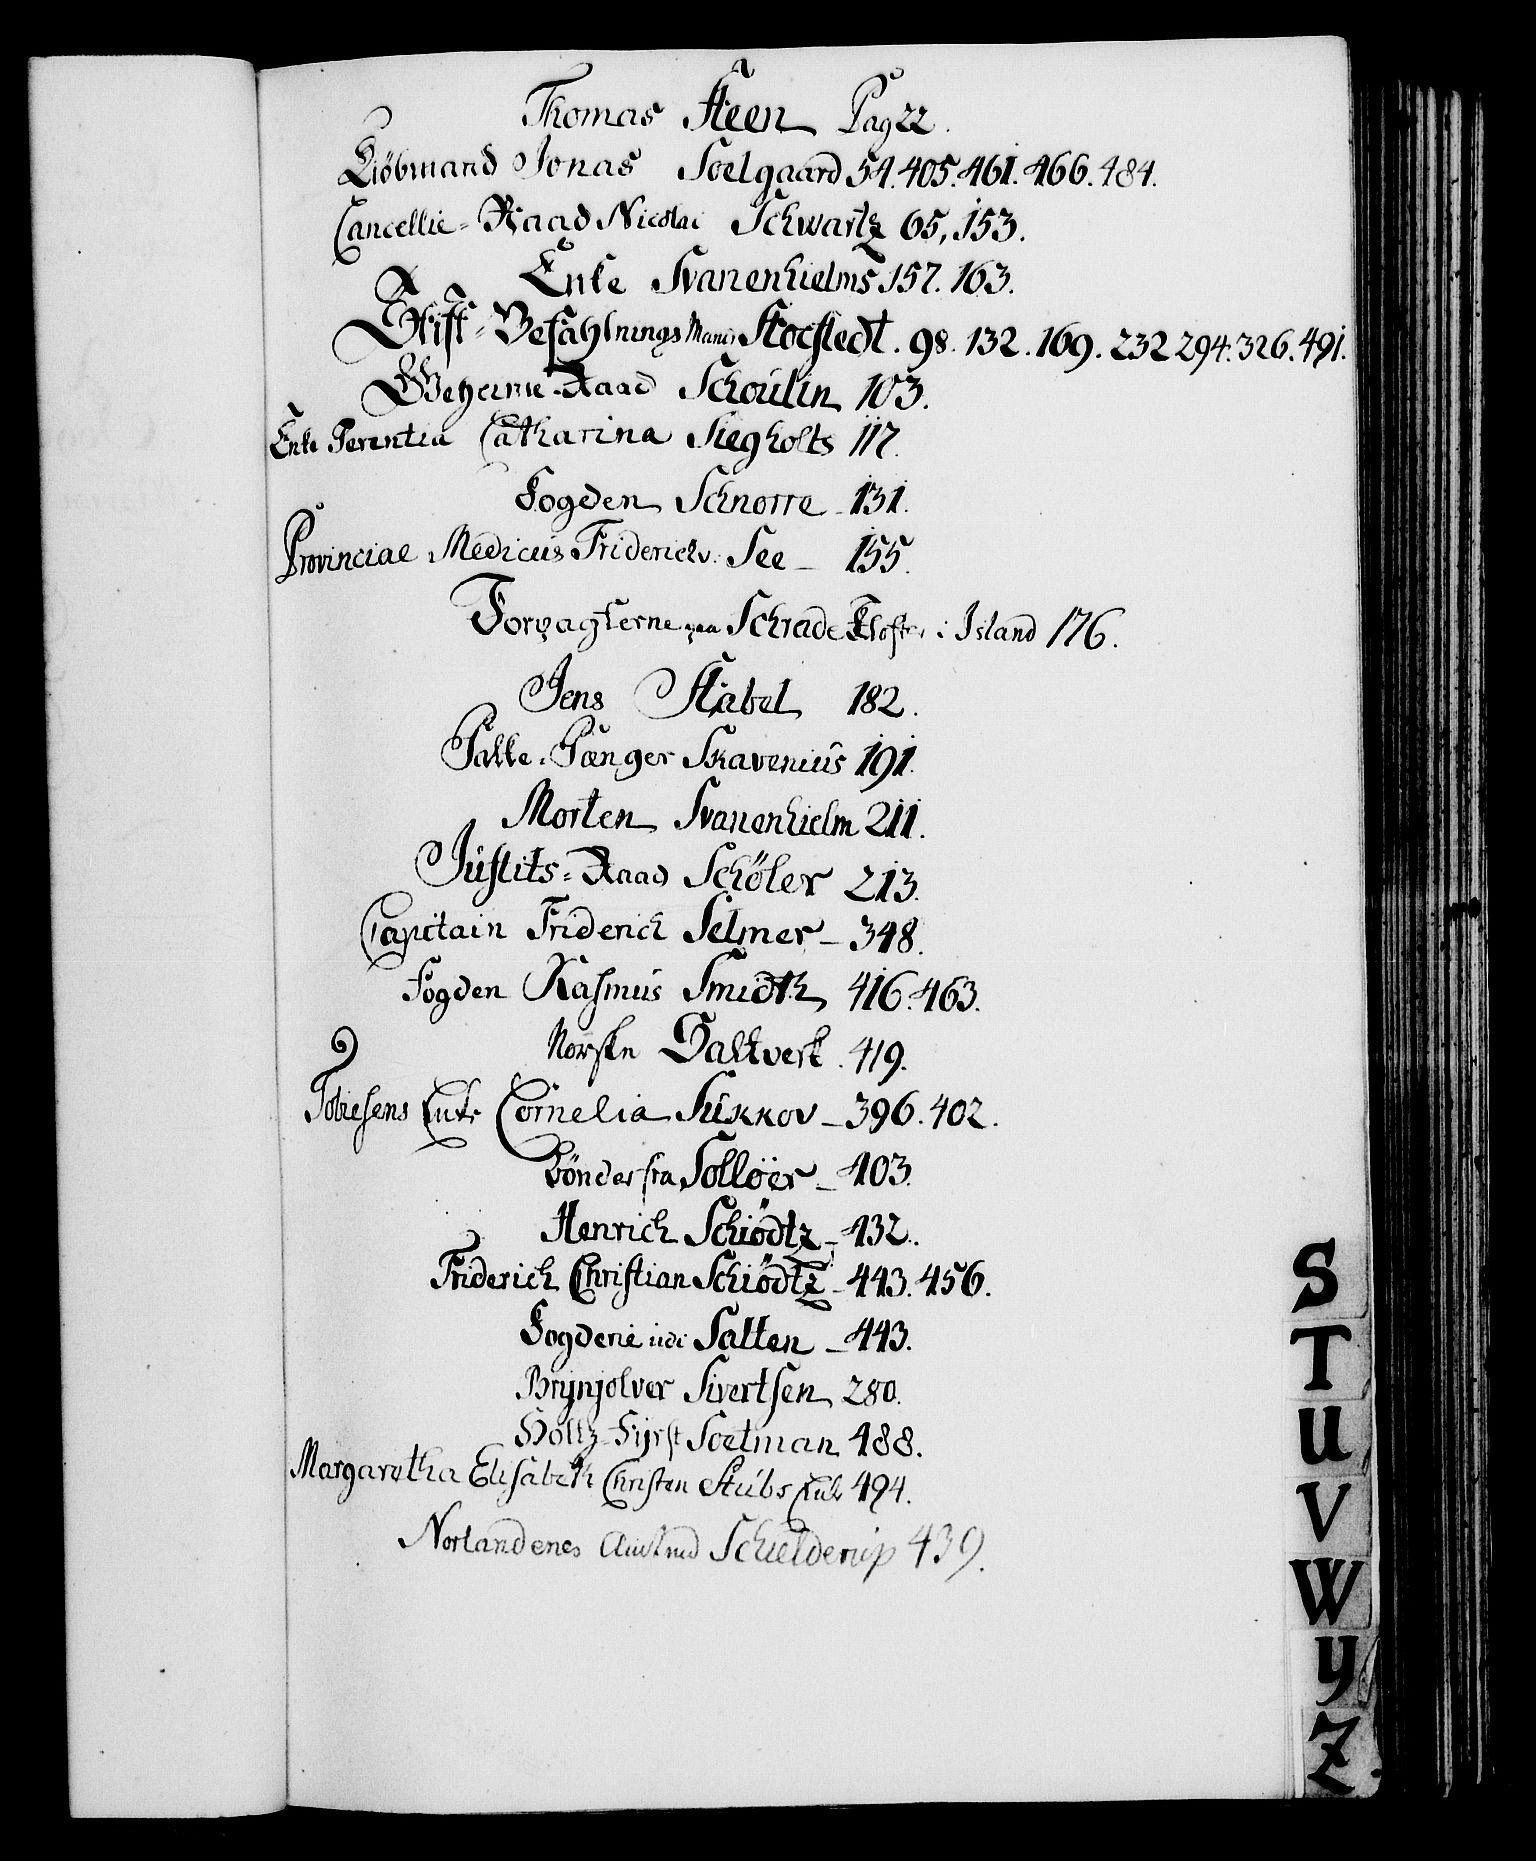 Thomas Steen Pag 22.
Kiöbmand Jonas Soelgaard 54. 405. 461. 466. 484.
Cancellie-Raad Nicolai Schwartz 65, 153.
Enke Svanenhielms 157. 163.
Stift-Befahlnings Mand Stocfledt. 98. 132. 169. 232 294. 326. 491.
Geheime-Raad Schoulin 103.
Enke Terentia Catharina Siegholts 117.
Fogden Schnorre - 131.
Provinciae Medicus Friderich v. See - 155.
Forpagterne paa Schrade Kloster i Island 176.
Jens Stabel 182.
Falke-Fænger Skavenius 191.
Morten Svanenhielm 211.
Justits-Raad Schöler 213.
Capitain Friderich Selmer - 348.
Fogden Rasmus Smidth 416. 463.
Norske Saltverk. 419.
Tobiesens Enke Cornelia Sukkov - 396. 402.
Bönder fra Sollöer - 403.
Henrich Schiödtz - 432.
Friderich Christian Schiödtz - 443. 456.
Fogderie udi Salten - 443.
Brynjolver Sivertsen 280.
Holtz-Fyrst Soetman 488.
Margaretha Elisabeth Christen Stubs Enke 494.
Norlandenes Amtmd Schielderup 439.
S
T
U
V
W
Y
Z